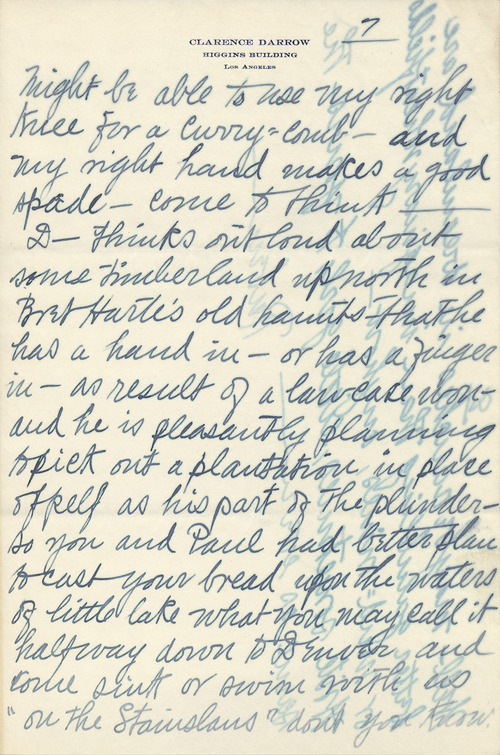 CLARENCE DARROW
HIGGINS BUILDING
LOS ANGELES
7
might be able to use my right
knee for a curry=comb – and
my right hand makes a good
spade – come to think ——
D – thinks out loud about
some timberland up north in
Bret Harte's old haunts – that he
has a hand in – or has a finger
in – as result of a law case won –
and he is pleasantly planning
to pick out a plantation in place
of pelf as his part of the plunder –
so you and Paul had better plan
to cast your bread upon the waters
of little lake what you may call it
halfway down to Denver and
come sink or swim with us
"on the Stainslaus" don't you know.